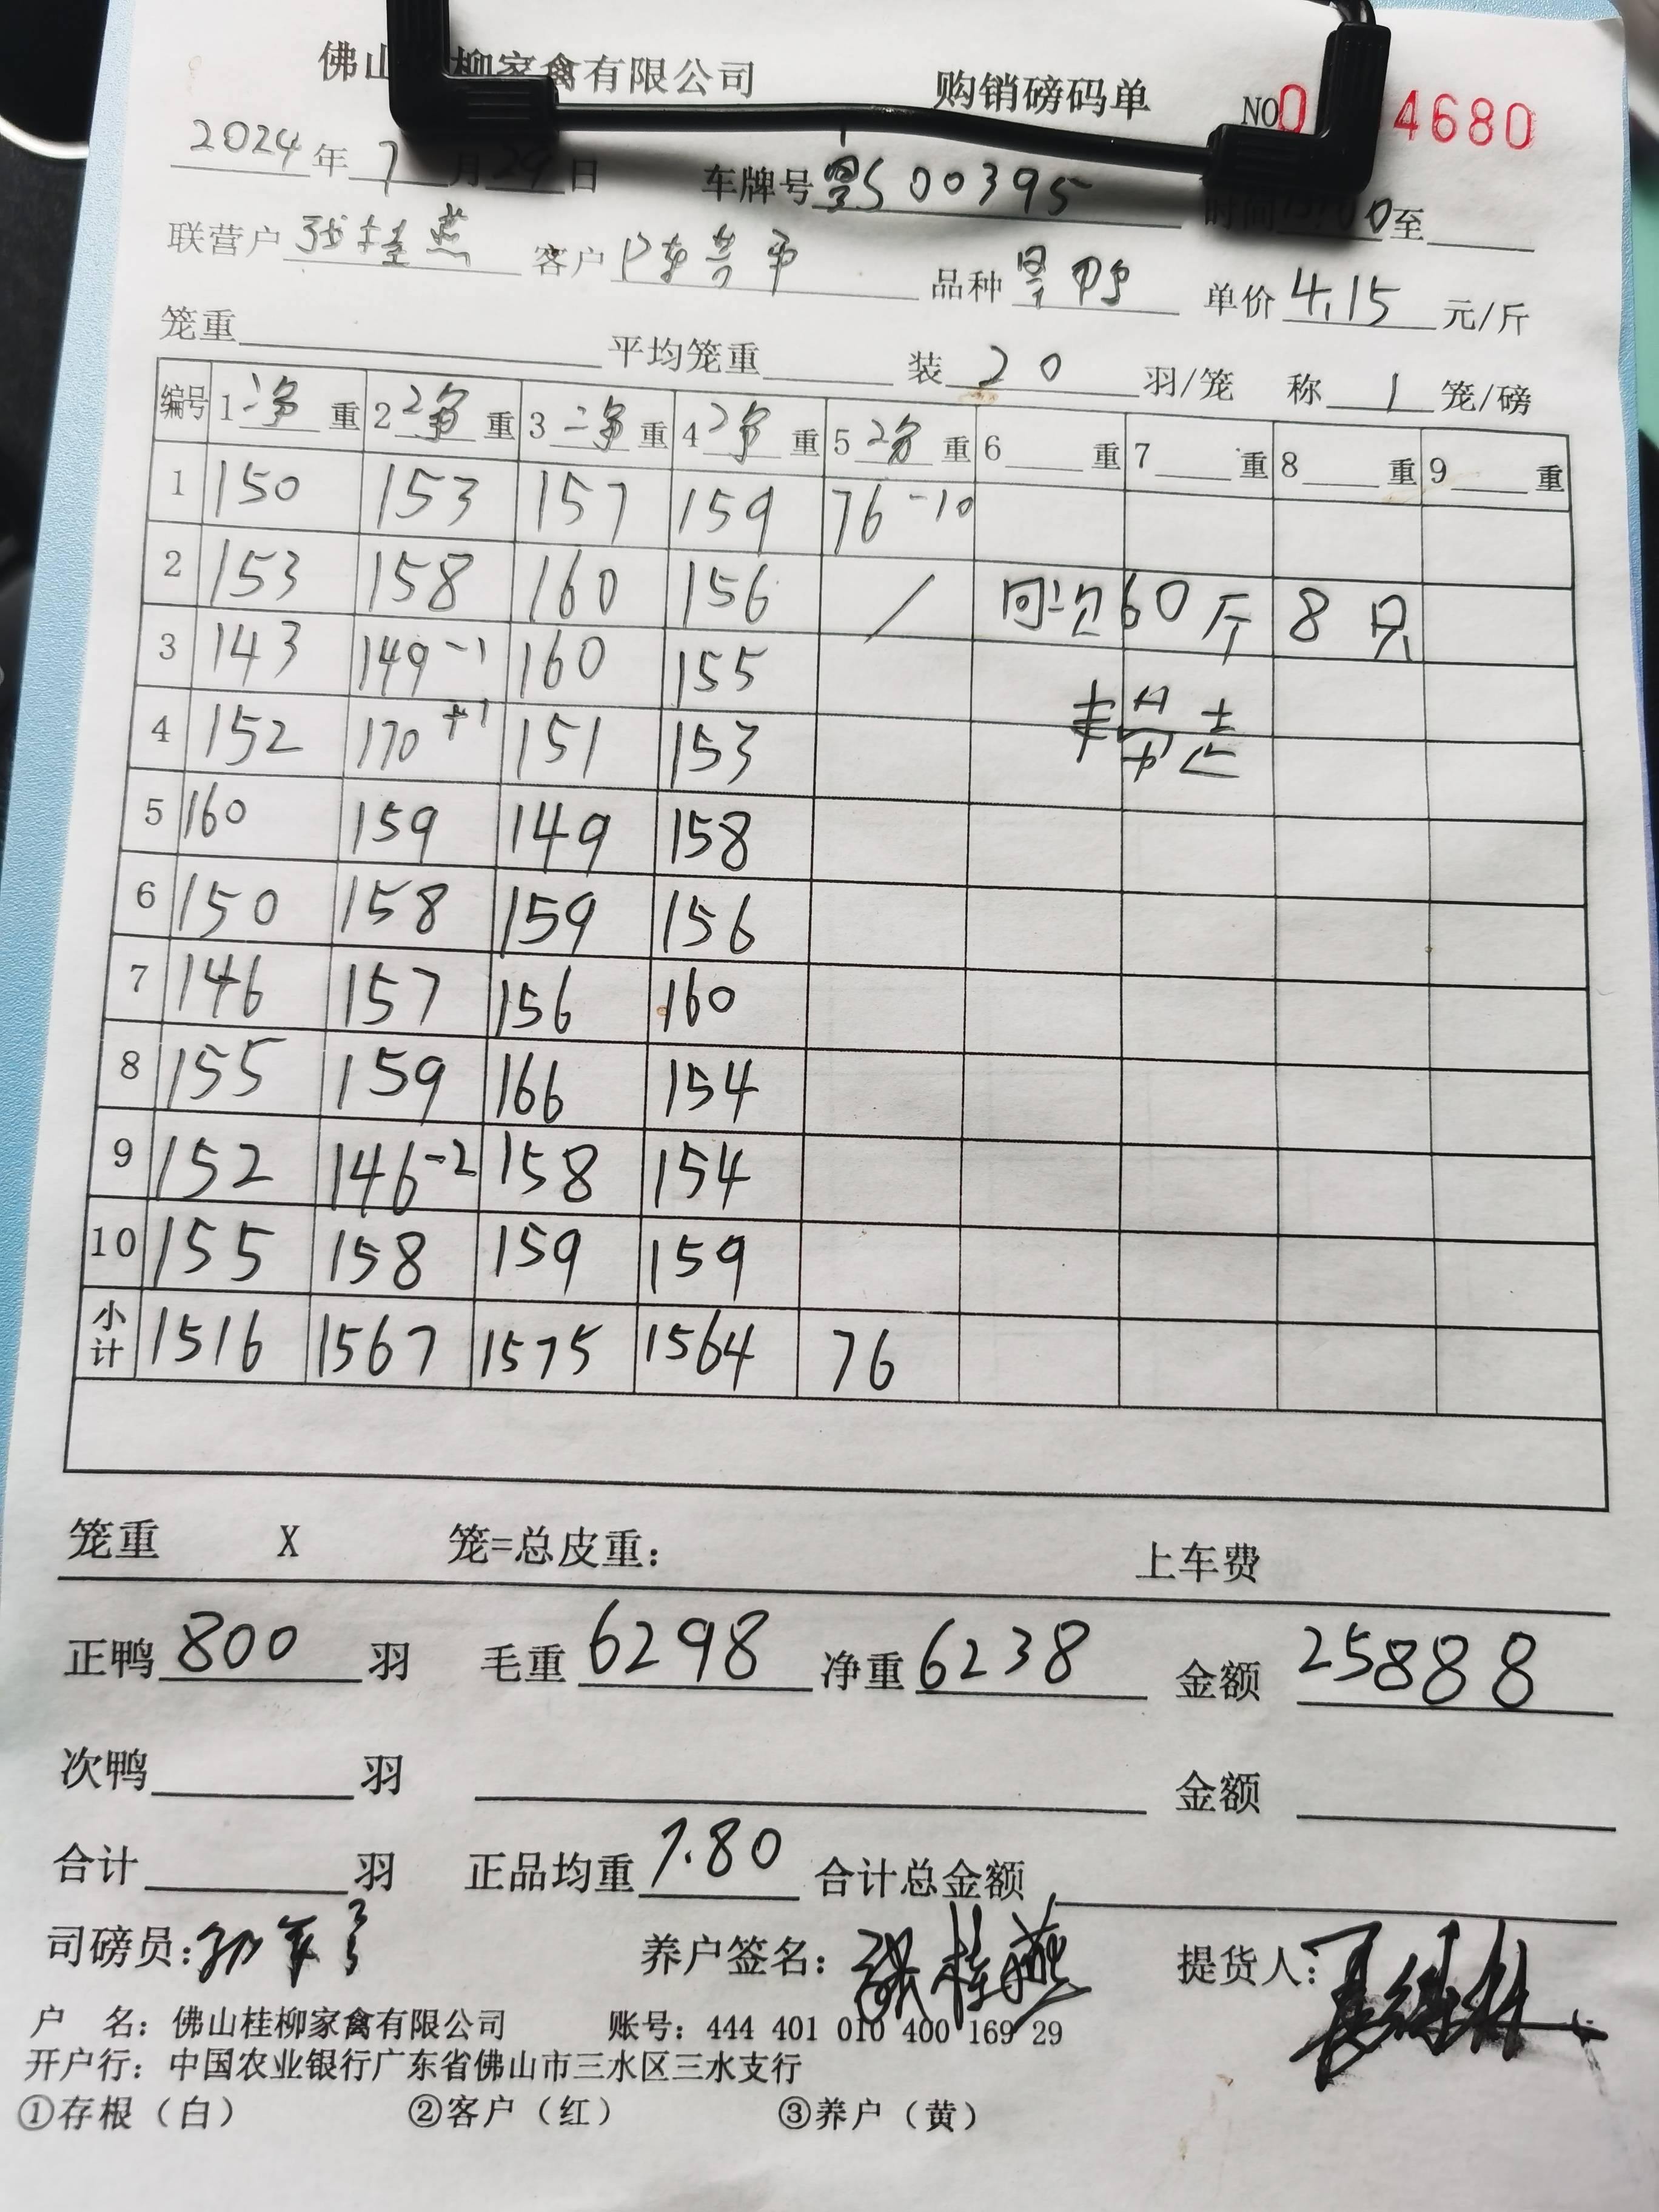 佛山 柳家禽有限公司 购销磅码单 NO 0 4680
2024年7月29日 车牌号 S00395 时间 :00至
联营户 张桂燕 客户 陈 平 品种 鸭 单价 4.15 元/斤
笼重 平均笼重 装 20 羽/笼 称 1 笼/磅
编号 1 净 重 2 净 重 3 净 重 4 净 重 5 净 重 6 重 7 重 8 重 9 重
1 150 153 157 159 76 -10
2 153 158 160 156 / 回次60斤 8只
3 143 149 -1 160 155
4 152 170 +1 151 153
5 160 159 149 158
6 150 158 159 156
7 146 157 156 160
8 155 159 166 154
9 152 146 -2 158 154
10 155 158 159 159
小计 1516 1567 1575 1564 76
笼重 X 笼=总皮重： 上车费
正鸭 800 羽 毛重 6298 净重 6238 金额 25888
次鸭 羽 金额
合计 羽 正品均重 7.80 合计总金额
司磅员： 养户签名：张桂燕 提货人：
户 名：佛山桂柳家禽有限公司 账号：444 401 010 400 169 29
开户行：中国农业银行广东省佛山市三水区三水支行
①存根（白） ②客户（红） ③养户（黄）